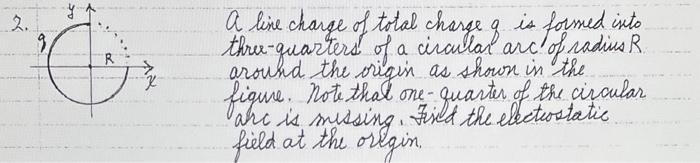 2.
y
q
R
x
A line charge of total charge q is formed into
three-quarters of a circular arc of radius R
around the origin as shown in the
figure. Note that one-quarter of the circular
arc is missing. Find the electrostatic
field at the origin.